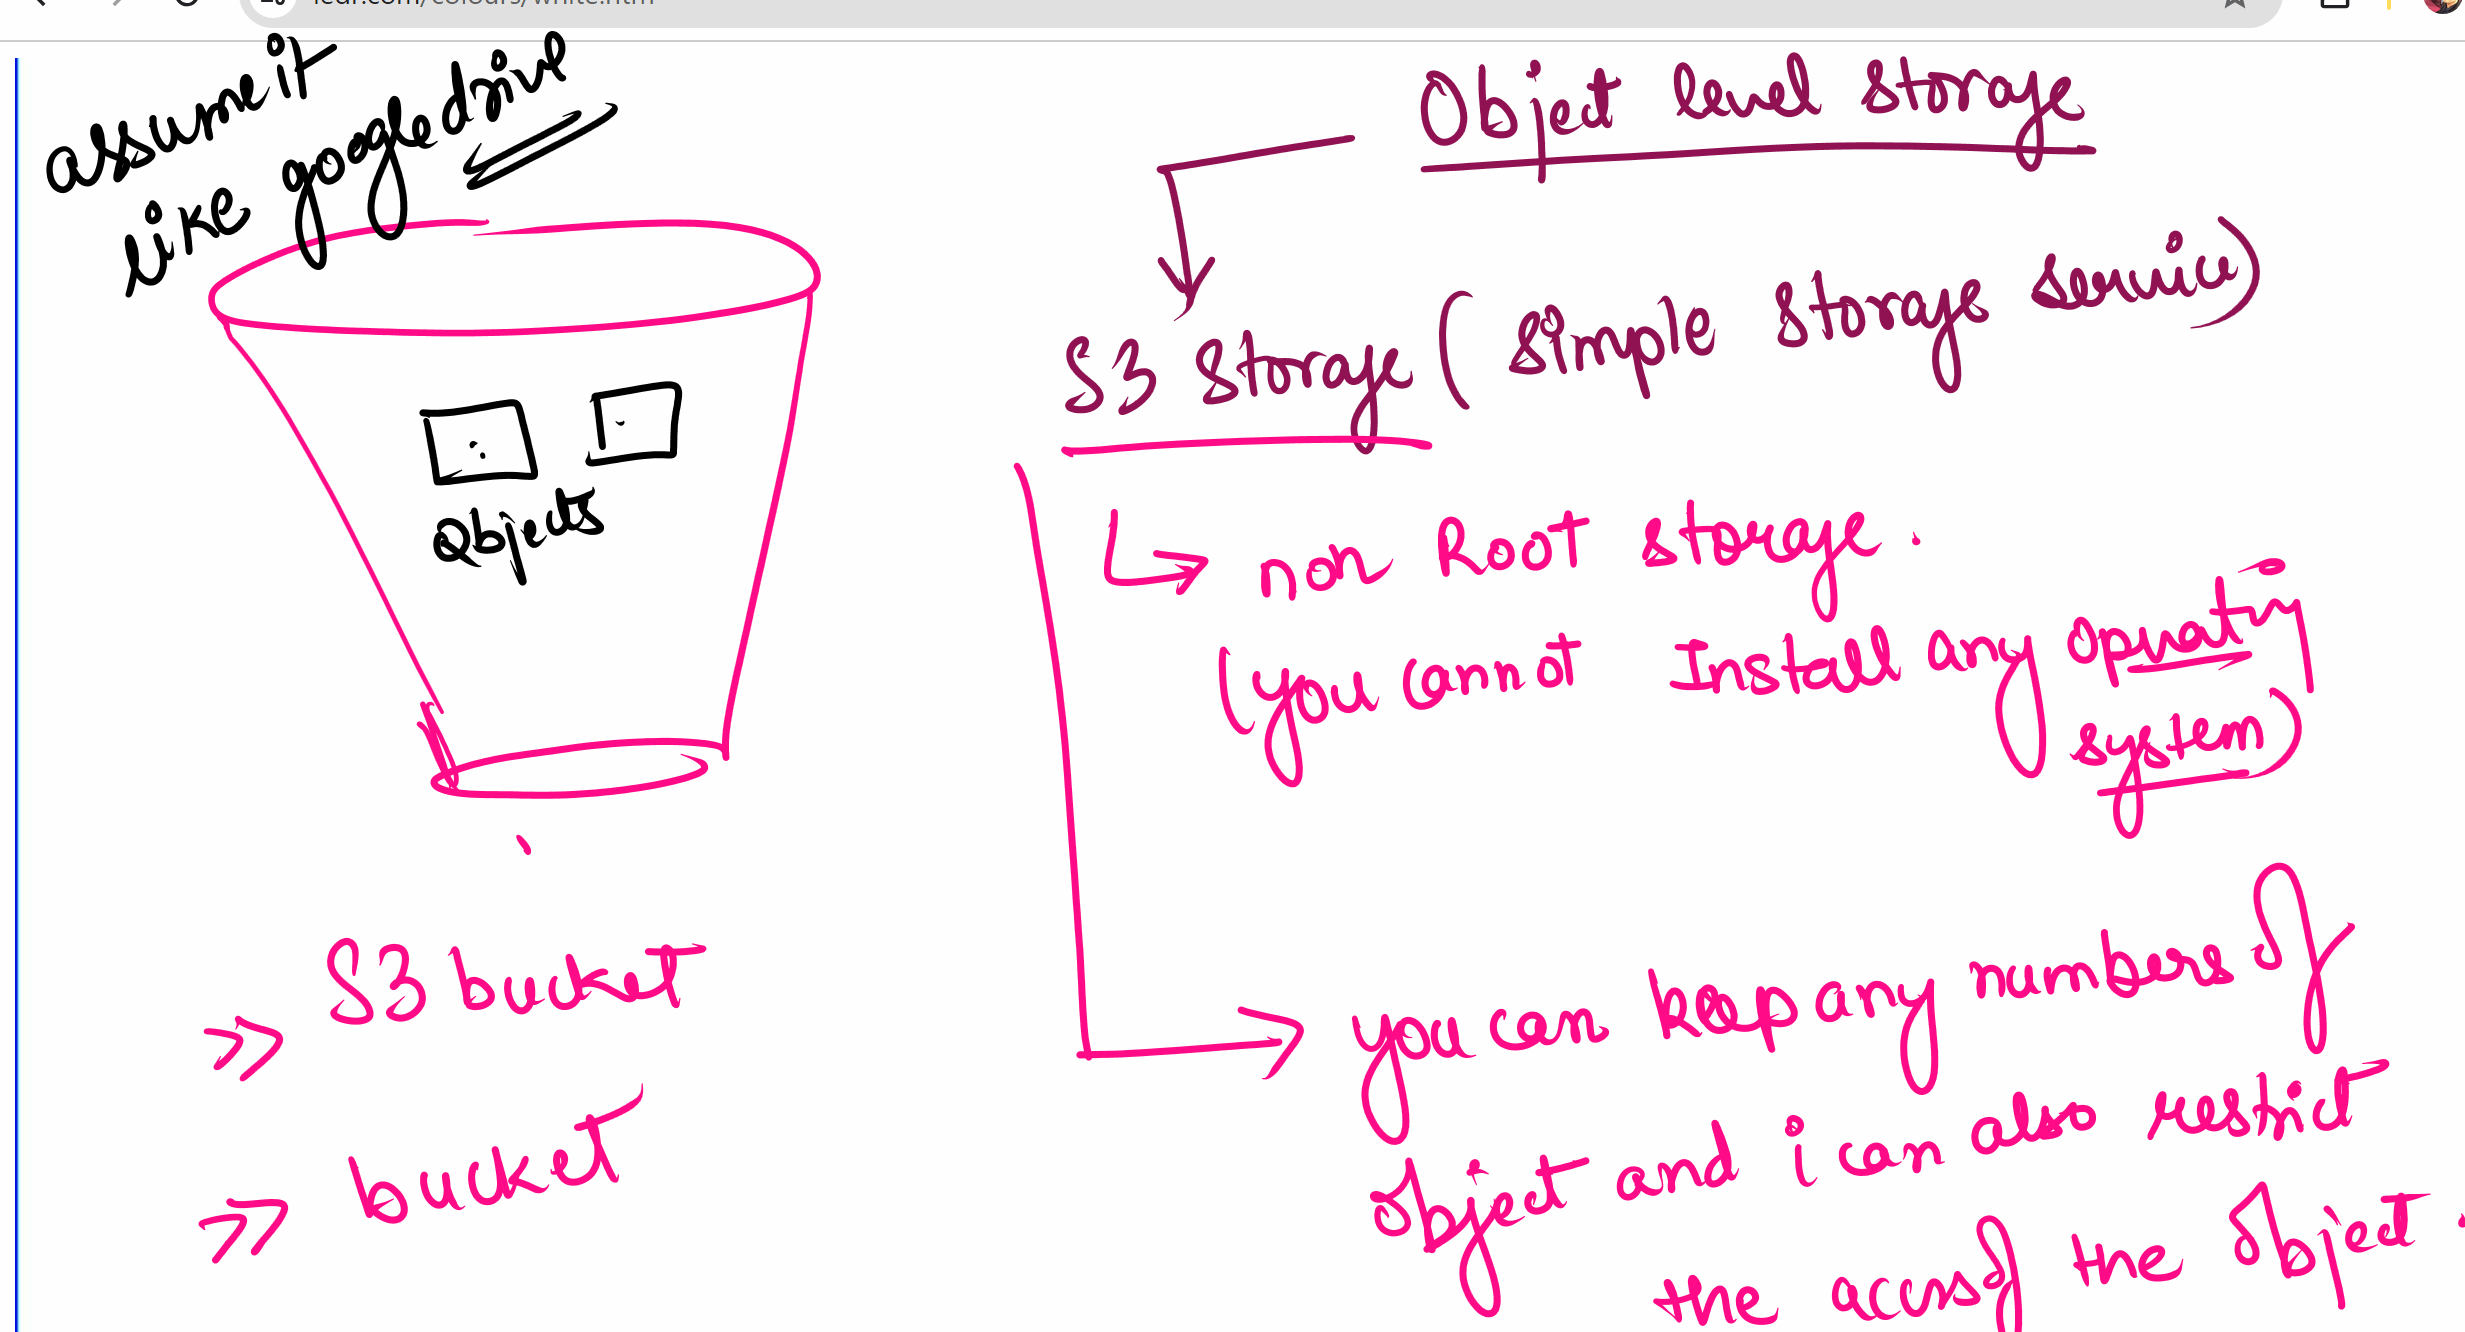 assume it
like googledrive
Objects
S3 bucket
bucket
Object level Storage
S3 Storage (Simple Storage Service)
non Root storage.
(you cannot Install any operating
system)
you can keep any numbers of
Object and i can also restrict
the access of the Object.